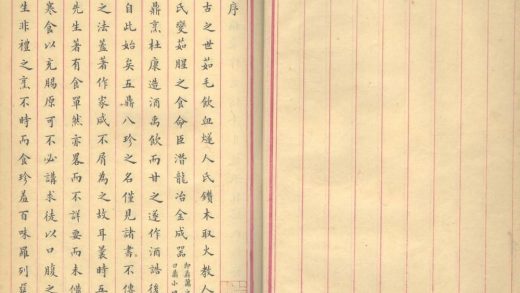 序
古之世茹毛飲血燧人氏鑽木取火教人
氏變茹腥之食命臣潛龍冶金成器
鼎烹杜康造酒禹飲而甘之遂作酒誥後
自此始矣五鼎八珍之名僅見諸書不傳
之法蓋著作家咸不屑為之故耳曩時五
先生著有食單然亦畧而不詳要而未備
寒食以充腸原可不必講求徒以口腹之
生非禮之烹不時而食珍羞百味羅列